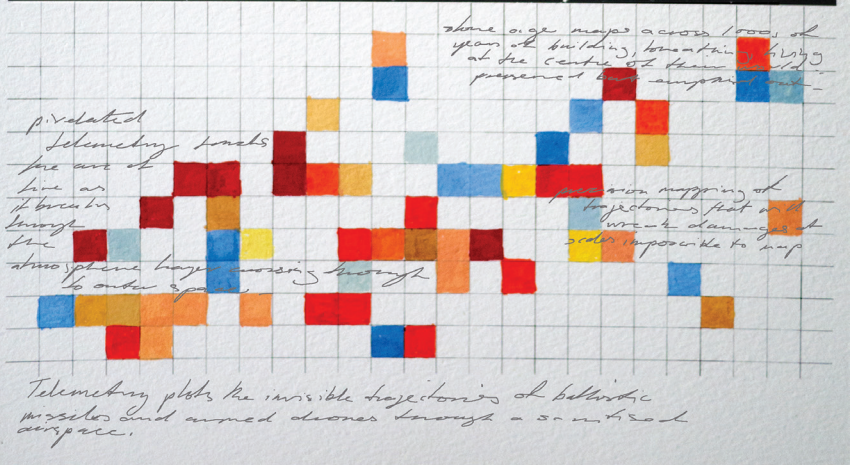 stone age maps across 1000s of
years of building, breathing, living
at the centre of their world
preserved but
pixelated
telemetry tracks
the arc of
fire as
it breaks
through
the
atmosphere layer crossing through
to outer space.
precision mapping of
trajectories that will
wreak damages at
scales impossible to map
Telemetry plots the invisible trajectories of ballistic
missiles and armed drones through a sanitised
airspace.